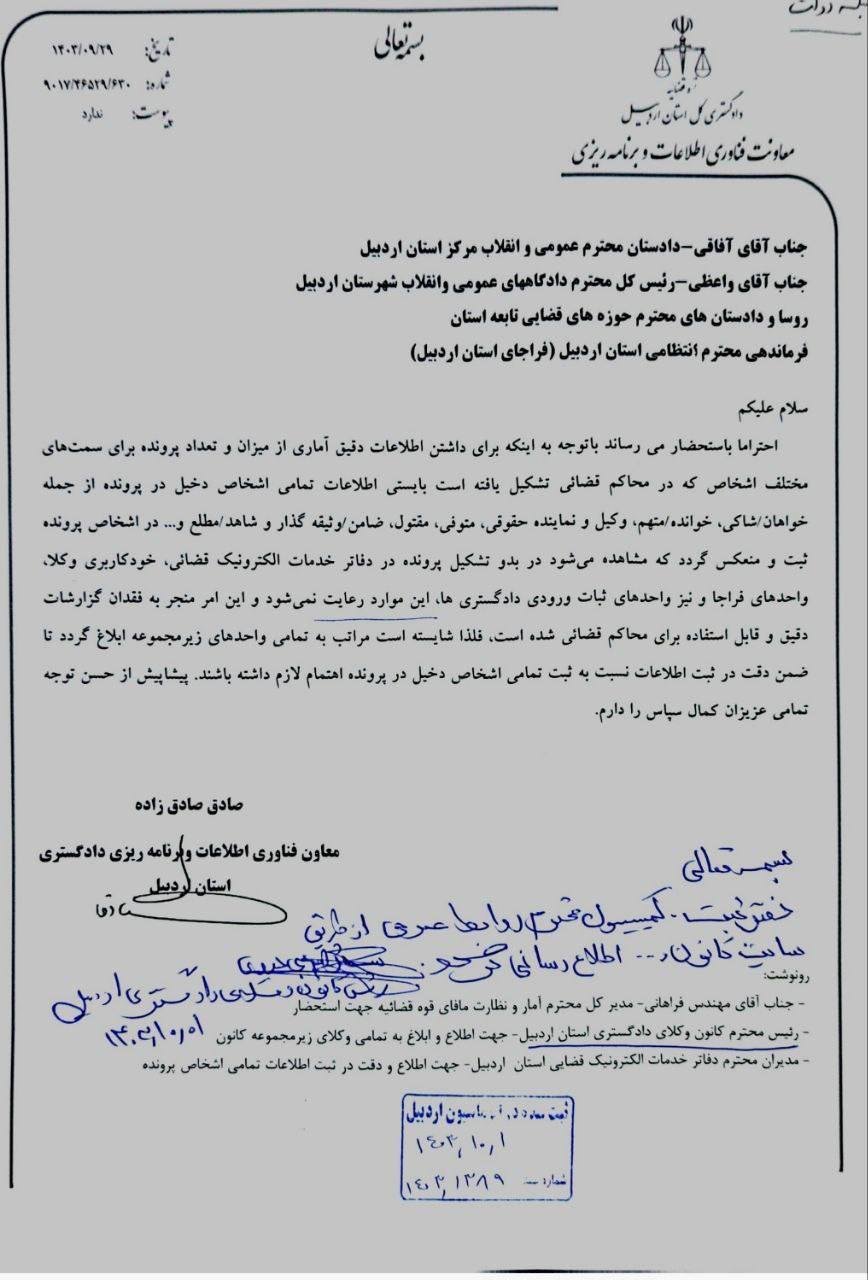 بسمه تعالی
تاریخ: ۱۴۰۳/۰۹/۲۹
شماره: ۹۰۱۷/۴۶۵۲۹/۶۳۰
پیوست: ندارد
قوه قضاییه
دادگستری کل استان اردبیل
معاونت فناوری اطلاعات و برنامه ریزی
جناب آقای آفاقی-دادستان محترم عمومی و انقلاب مرکز استان اردبیل
جناب آقای واعظی-رئیس کل محترم دادگاههای عمومی وانقلاب شهرستان اردبیل
روسا و دادستان های محترم حوزه های قضایی تابعه استان
فرماندهی محترم انتظامی استان اردبیل (فراجای استان اردبیل)
سلام علیکم
احتراما باستحضار می رساند باتوجه به اینکه برای داشتن اطلاعات دقیق آماری از میزان و تعداد پرونده برای سمت‌های
مختلف اشخاص که در محاکم قضائی تشکیل یافته است بایستی اطلاعات تمامی اشخاص دخیل در پرونده از جمله
خواهان/شاکی، خوانده/متهم، وکیل و نماینده حقوقی، متوفی، مقتول، ضامن/وثیقه گذار و شاهد/مطلع و... در اشخاص پرونده
ثبت و منعکس گردد که مشاهده می‌شود در بدو تشکیل پرونده در دفاتر خدمات الکترونیک قضائی، خودکاربری وکلا،
واحدهای فراجا و نیز واحدهای ثبات ورودی دادگستری ها، این موارد رعایت نمی‌شود و این امر منجر به فقدان گزارشات
دقیق و قابل استفاده برای محاکم قضائی شده است، فلذا شایسته است مراتب به تمامی واحدهای زیرمجموعه ابلاغ گردد تا
ضمن دقت در ثبت اطلاعات نسبت به ثبت تمامی اشخاص دخیل در پرونده اهتمام لازم داشته باشند. پیشاپیش از حسن توجه
تمامی عزیزان کمال سپاس را دارم.
صادق صادق زاده
معاون فناوری اطلاعات و برنامه ریزی دادگستری
استان اردبیل
بسمه تعالی
دفتر ثبت. کمیسیون محترم روابط عمومی از طریق
سایت کانون ... اطلاع رسانی
رئیس کانون وکلای دادگستری اردبیل
۱۴۰۳/۱۰/۰۱
رونوشت:
- جناب آقای مهندس فراهانی- مدیر کل محترم آمار و نظارت مافای قوه قضائیه جهت استحضار
- رئیس محترم کانون وکلای دادگستری استان اردبیل- جهت اطلاع و ابلاغ به تمامی وکلای زیرمجموعه کانون
- مدیران محترم دفاتر خدمات الکترونیک قضایی استان اردبیل- جهت اطلاع و دقت در ثبت اطلاعات تمامی اشخاص پرونده
ثبت اردبیل
۱۴۰۳/۱۰/۱
شماره ۱۴۰۳/۱۳۸۹